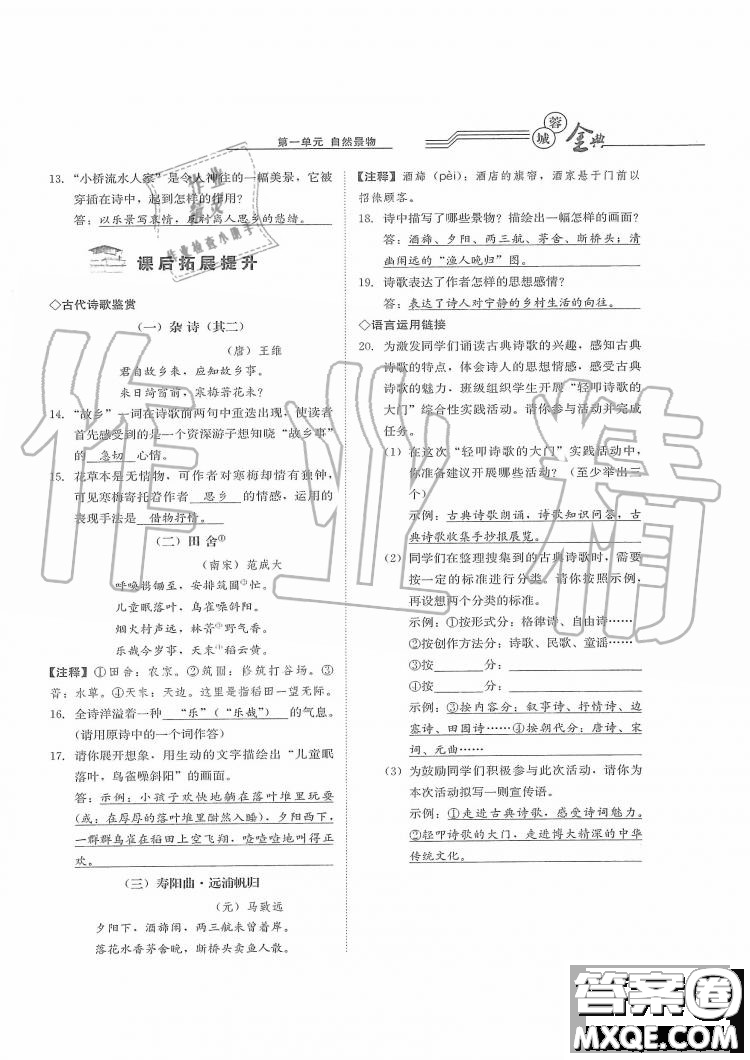 第一单元 自然景物
蓉城金典
13. “小桥流水人家”是令人神往的一幅美景，它被
穿插在诗中，起到怎样的作用？
答：以乐景写哀情，反衬离人思乡的愁绪。
课后拓展提升
◇古代诗歌鉴赏
（一）杂诗（其二）
（唐）王维
君自故乡来，应知故乡事。
来日绮窗前，寒梅著花未？
14. “故乡”一词在诗歌前两句中重迭出现，使读者
首先感受到的是一个资深游子想知晓“故乡事”
的 急切 心情。
15. 花草本是无情物，可作者对寒梅却情有独钟，
可见寒梅寄托着作者 思乡 的情感，运用的
表现手法是 借物抒情。
（二）田 舍①
（南宋）范成大
呼唤携锄至，安排筑圃②忙。
儿童眠落叶，鸟雀噪斜阳。
烟火村声远，林菁③野气香。
乐哉今岁事，天末④稻云黄。
【注释】①田舍：农家。②筑圃：修筑打谷场。③
菁：水草。④天末：天边。这里是指稻田一望无际。
16. 全诗洋溢着一种 “乐”（“乐哉”） 的气息。
（请用原诗中的一个词作答）
17. 请你展开想象，用生动的文字描绘出“儿童眠
落叶，鸟雀噪斜阳”的画面。
答：示例：小孩子欢快地躺在落叶堆里玩耍
（或：在厚厚的落叶堆里酣然入睡），夕阳西下，
一群群鸟雀在稻田上空飞翔，喳喳喳地叫得正
欢。
（三）寿阳曲·远浦帆归
（元）马致远
夕阳下，酒旆闲，两三航未曾着岸。
落花水香茅舍晚，断桥头卖鱼人散。
【注释】酒旆（pèi）：酒店的旗帘，酒家悬于门前以
招徕顾客。
18. 诗中描写了哪些景物？描绘出一幅怎样的画面？
答：酒旆、夕阳、两三航、茅舍、断桥头；清
幽闲远的“渔人晚归”图。
19. 诗歌表达了作者怎样的思想感情？
答：表达了诗人对宁静的乡村生活的向往。
◇语言运用链接
20. 为激发同学们诵读古典诗歌的兴趣，感知古典
诗歌的特点，体会诗人的思想情感，感受古典
诗歌的魅力，班级组织学生开展“轻叩诗歌的
大门”综合性实践活动。请你参与活动并完成
任务。
（1）在这次“轻叩诗歌的大门”实践活动中，
你准备建议开展哪些活动？（至少举出三
个）
示例：古典诗歌朗诵，诗歌知识问答，古
典诗歌收集手抄报展览。
（2）同学们在整理搜集到的古典诗歌时，需要
按一定的标准进行分类。请你按照示例，
再设想两个分类的标准。
示例：①按形式分：格律诗、自由诗……
②按创作方法分：诗歌、民歌、童谣……
③按 分：
④按 分：
示例：③按内容分：叙事诗、抒情诗、边
塞诗、田园诗……④按朝代分：唐诗、宋
词、元曲……
（3）为鼓励同学们积极参与此次活动，请你为
本次活动拟写一则宣传语。
示例：①走进古典诗歌，感受诗词魅力。
②轻叩诗歌的大门，走进博大精深的中华
传统文化。
作业精
答案圈
MXQE.COM